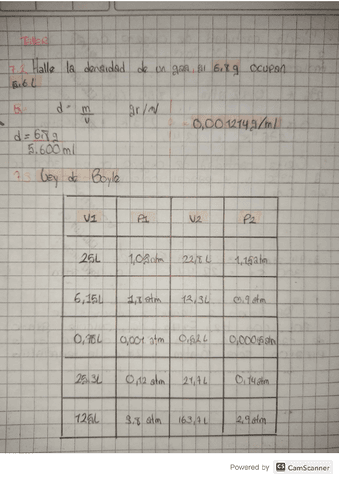 7. Halle la densidad de un gas si 6.8 g ocupan
5.6 L
R. d = m/v gr/ml
0,001214g/ml
d = 6.8 g
5.600 ml
? Ley de Boyle
V1 P1 V2 P2
25L 1,05 atm 22,8 L 1,15 atm
6,15L 1,8 atm 12,3L 0.9 atm
0,001 atm 0,0005 atm
25,3L 0,12 atm 21,7L 0,14 atm
125L 3.8 atm 163,7L 2,9 atm
Powered by CS CamScanner